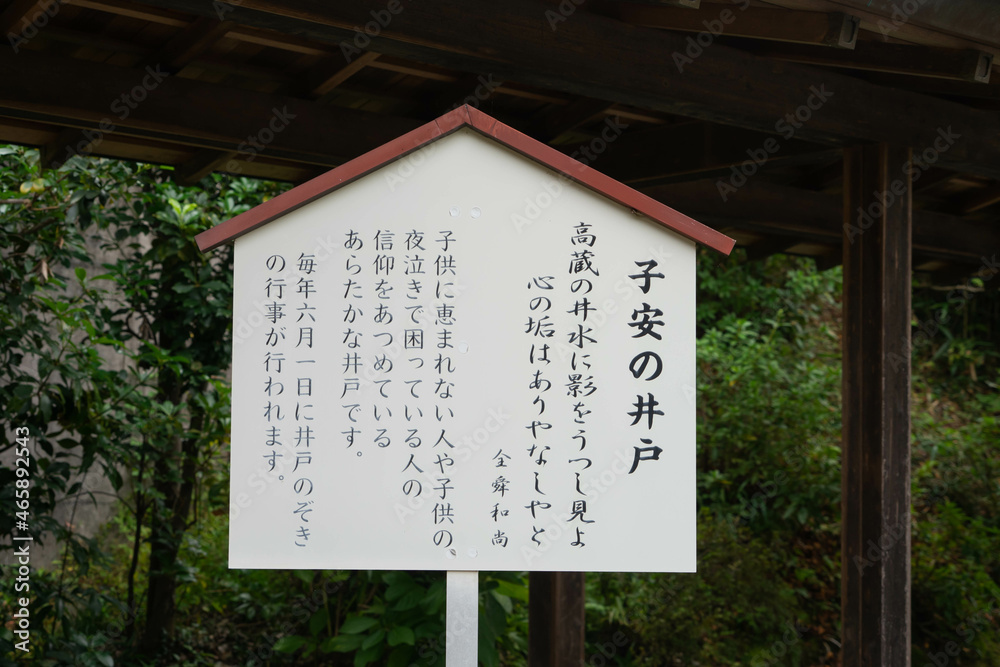 子安の井戸
高蔵の井水に影をうつし見よ
心の垢はありやなしやと
全舜和尚
子供に恵まれない人や子供の、
夜泣きで困っている人の
信仰をあつめている
あらたかな井戸です。
毎年六月一日に井戸のぞき
の行事が行われます。
Adobe Stock | #465892543